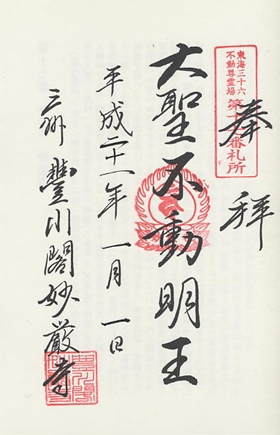 奉拝
東海三十六
不動尊霊場
大聖不動明王
平成二十一年一月一日
三州豊川閣妙厳寺